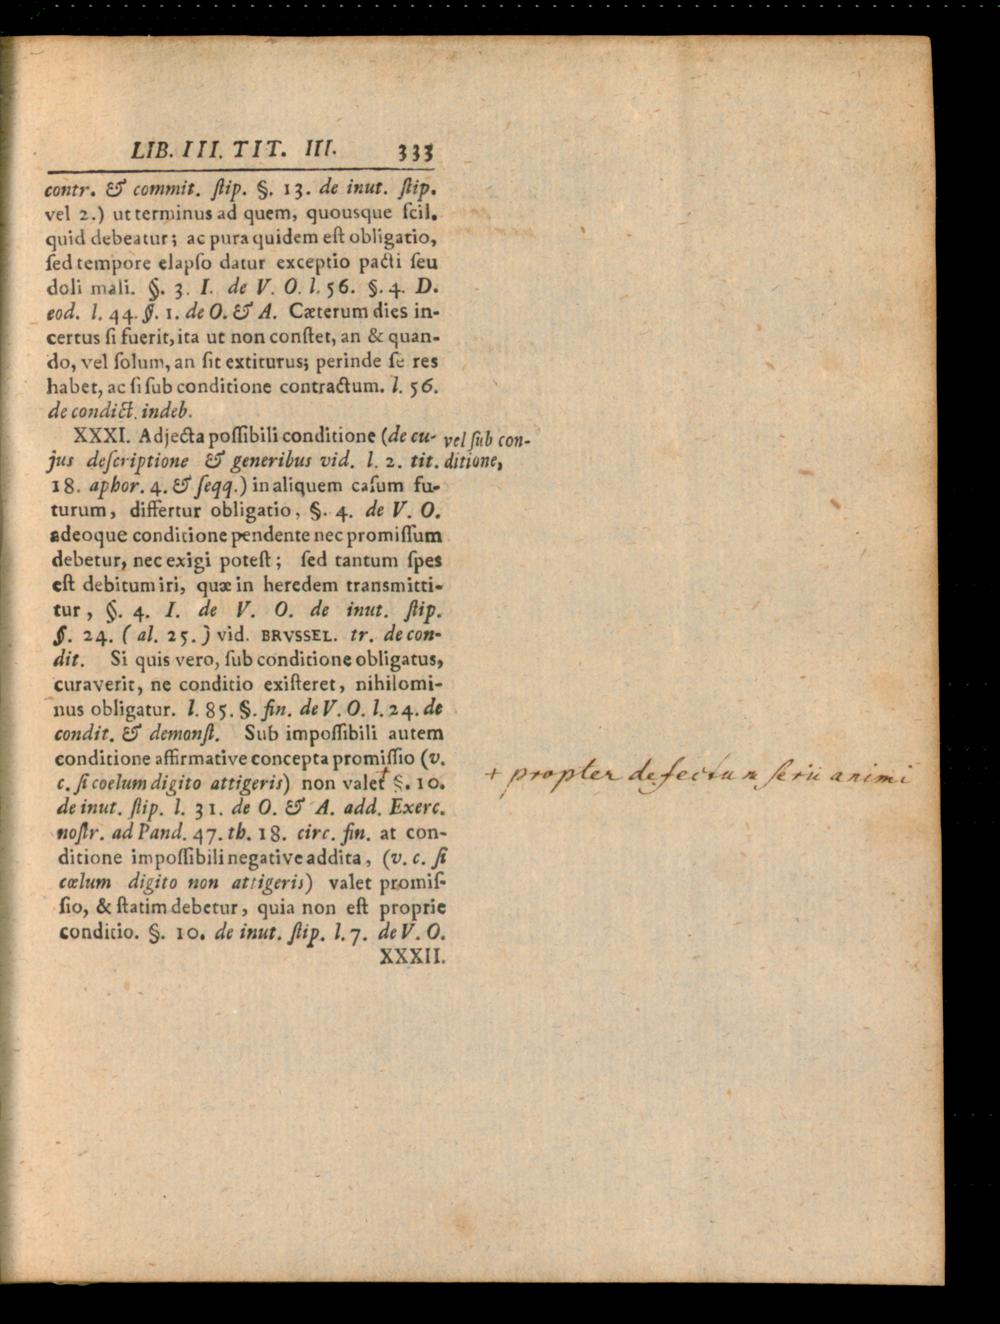 LIB. III. TIT. III. 333
contr. & commit. ſtip. §. 13. de inut. ſtip.
vel 2.) ut terminus ad quem, quousque ſcil.
quid debeatur; ac pura quidem eſt obligatio,
ſed tempore elapſo datur exceptio pacti ſeu
doli mali. §. 3. I. de V. O. l. 56. §. 4. D.
eod. l. 44. §. 1. de O. & A. Cæterum dies in-
certus ſi fuerit, ita ut non conſtet, an & quan-
do, vel ſolum, an ſit extiturus; perinde ſe res
habet, ac ſi ſub conditione contractum. l. 56.
de condict. indeb.
XXXI. Adjecta poſſibili conditione (de cu-
vel ſub con-
jus deſcriptione & generibus vid. l. 2. tit.
ditione,
18. aphor. 4. & ſeqq.) in aliquem caſum fu-
turum, differtur obligatio, §. 4. de V. O.
adeoque conditione pendente nec promiſſum
debetur, nec exigi poteſt; ſed tantum ſpes
eſt debitum iri, quæ in heredem transmitti-
tur, §. 4. I. de V. O. de inut. ſtip.
§. 24. (al. 25.) vid. BRVSSEL. tr. de con-
dit. Si quis vero, ſub conditione obligatus,
curaverit, ne conditio exiſteret, nihilomi-
nus obligatur. l. 85. §. fin. de V. O. l. 24. de
condit. & demonſt. Sub impoſſibili autem
conditione affirmative concepta promiſſio (v.
c. ſi coelum digito attigeris) non valet † §. 10.
+ propter defectum ſerii animi
de inut. ſtip. l. 31. de O. & A. add. Exerc.
noſtr. ad Pand. 47. th. 18. circ. fin. at con-
ditione impoſſibili negative addita, (v. c. ſi
cœlum digito non attigeris) valet promiſ-
ſio, & ſtatim debetur, quia non eſt proprie
conditio. §. 10. de inut. ſtip. l. 7. de V. O.
XXXII.